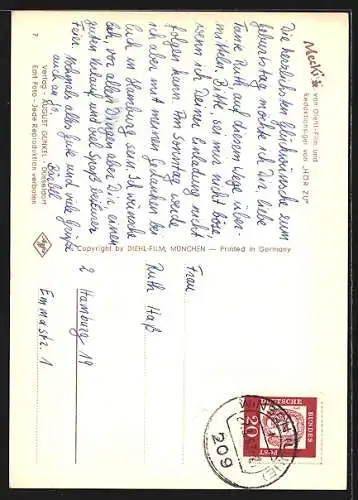 Mecki
von Diehl-Film und
Redaktionsigel von „HÖR ZU"
Die herzlichsten Glückwünsche zum
Geburtstag möchte ich Dir, liebe
Tante Ruth auf diesem Wege über-
mitteln. Bitte, sei mir nicht böse
wenn ich Deiner Einladung nicht
folgen kann. Am Sonntag werde
ich aber mit meinen Gedanken bei
Euch in Hamburg sein. Ich wünsche
Euch, vor allen Dingen aber Dir, einen
guten Verlauf und viel Spaß bei Eurer
Feier. Nochmals alles Gute und viele Grüße
auch an
7
Verlag - AUGUST GUNKEL - Düsseldorf
Echt Foto - Jede Reproduktion verboten
Agfa
Copyright by DIEHL-FILM, MÜNCHEN — Printed in Germany
Frau
Ruth Haß
2 Hamburg 19
Emmastr. 1
WINSEN (LUHE)
209
DEUTSCHE
BUNDES
POST
20